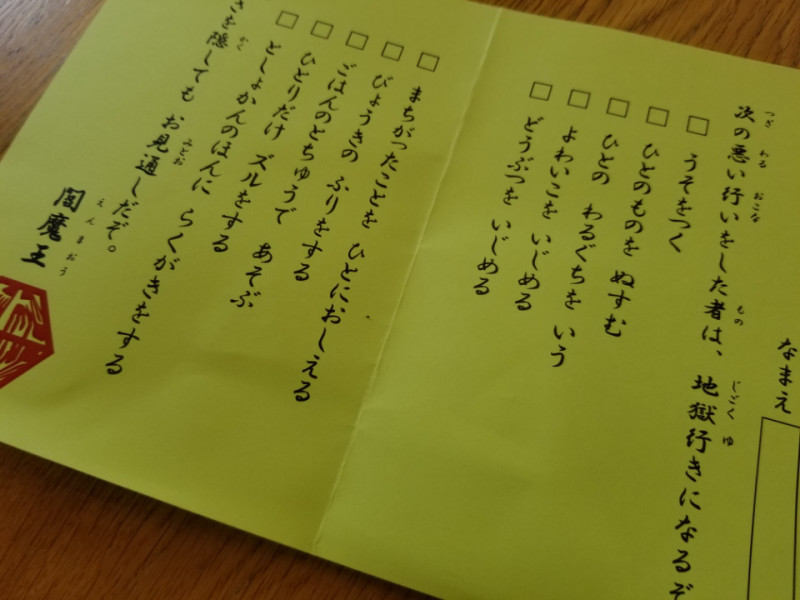 なまえ
つぎ わる おこな もの じごく ゆ
次の悪い行いをした者は、地獄行きになるぞ
□ うそをつく
□ ひとのものを ぬすむ
□ ひとの わるぐちを いう
□ よわいこを いじめる
□ どうぶつを いじめる
□ まちがったことを ひとにおしえる
□ びょうきの ふりをする
□ ごはんのとちゅうで あそぶ
□ ひとりだけ ズルをする
□ としょかんのほんに らくがきをする
かく みとお
さを隠しても お見通しだぞ。
えんまおう
閻魔王